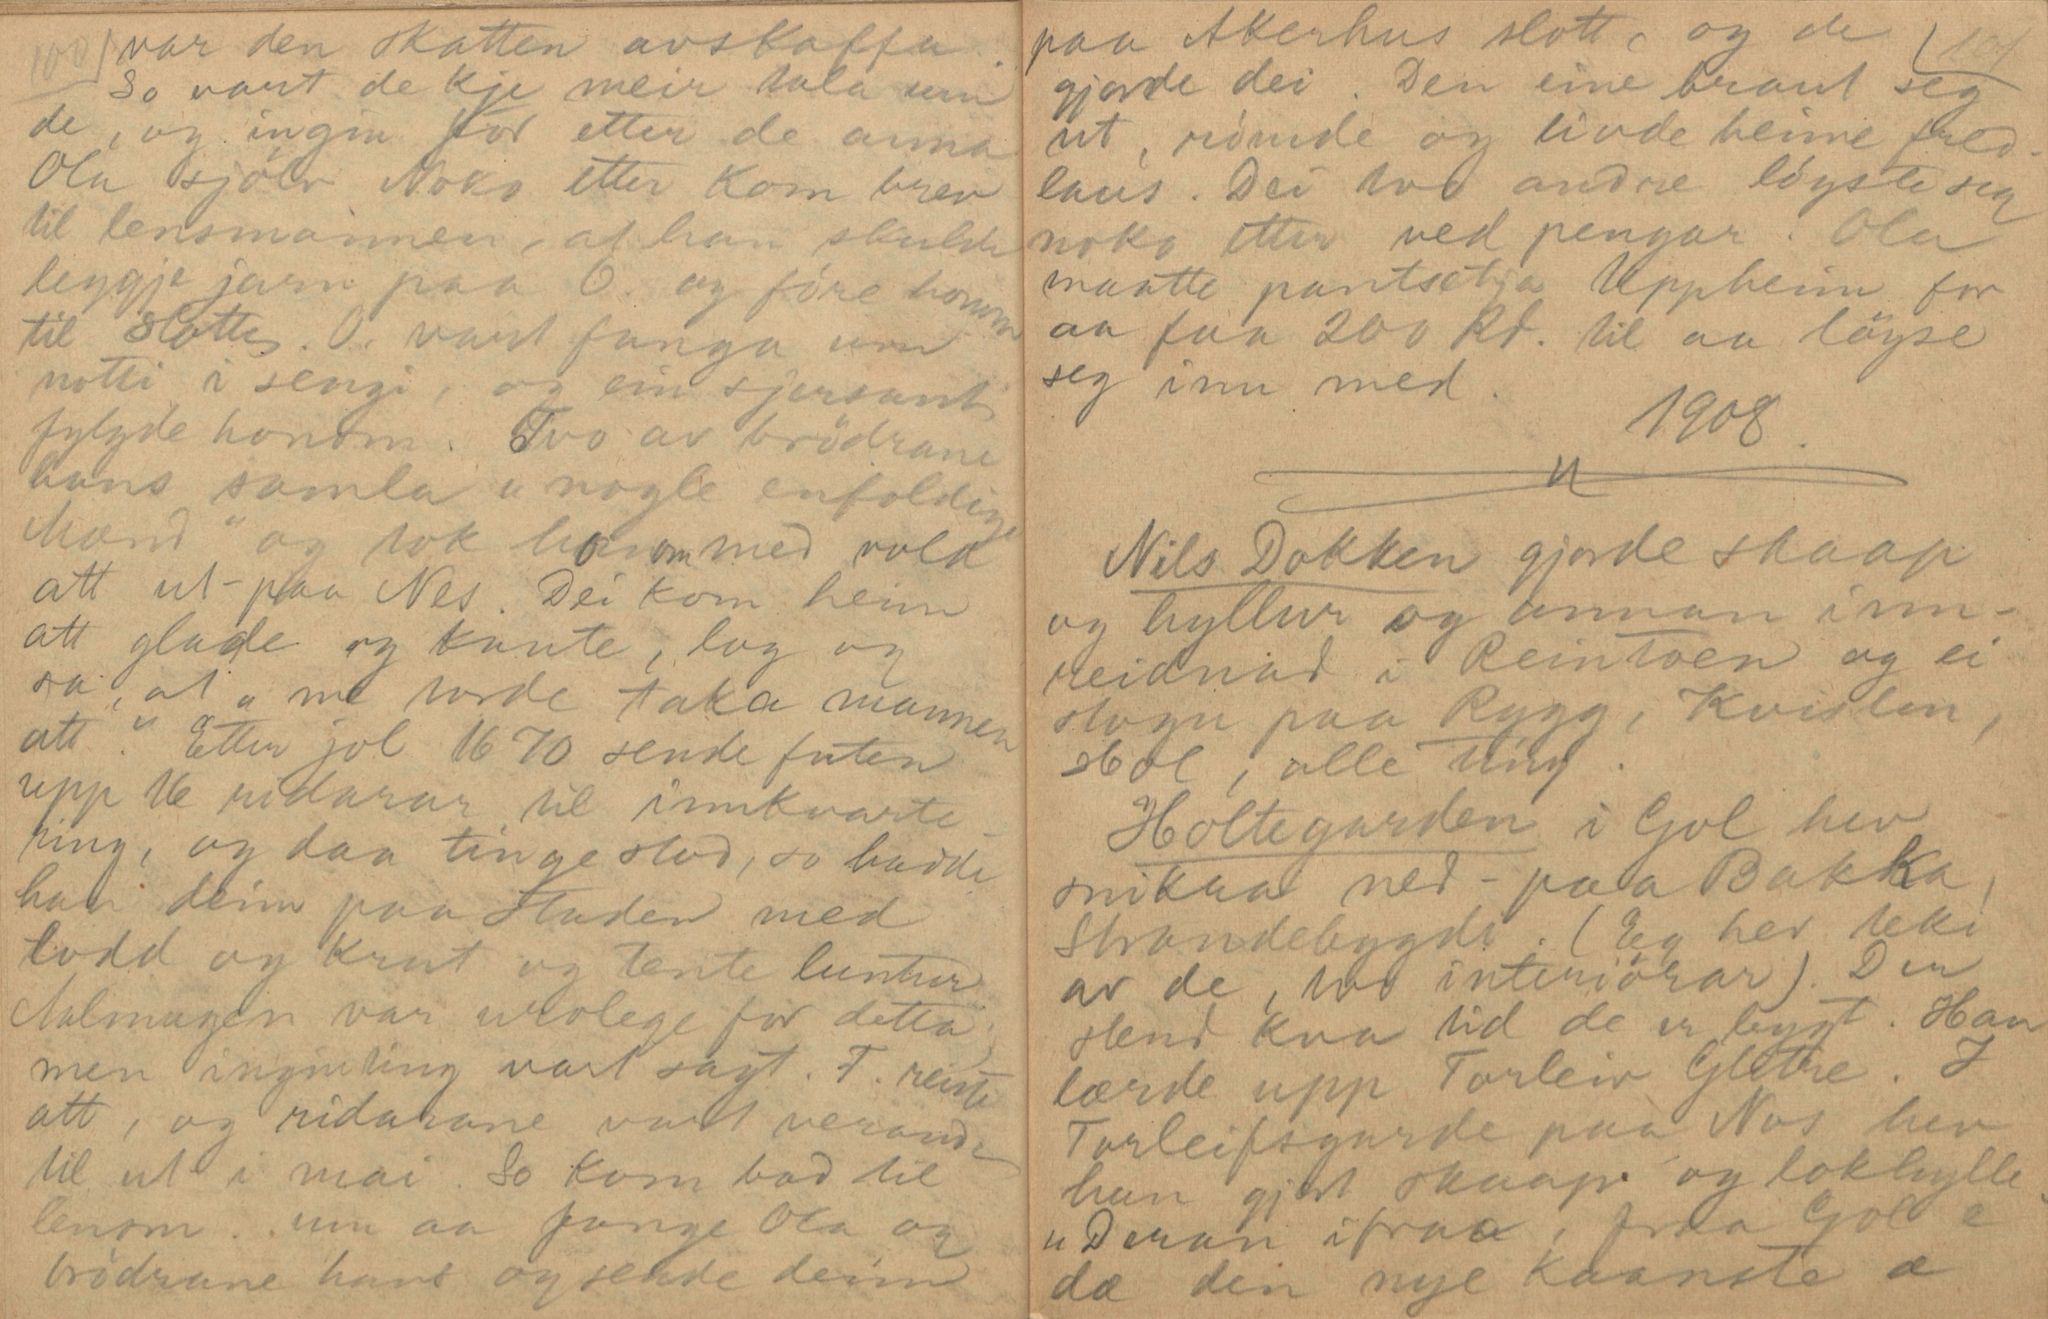 100
var den skatten avskaffa.
So vart de kje meir tala um
de, og ingin for etter de anna
Ola sjölv. Noko etter kom brev
til lensmannen, at han skulde
leggje jarn paa O. og före honom
til Slotts. O. vart fanga um
notti i sengi, og ein sjersant
fylgde honom. Tvo av brödrane
hans samla „nogle enfoldige
Mænd" og tok honom med vold
att ut-paa Nes. Dei kom heim
att glade og kaute, log og
sa, at „me torde taka mannen
att." Etter jol 1670 sende futen
upp 16 ridarar til innkvarte-
ring, og daa tinge stod, so hadde
han deim paa Staden med
lodd og krut og tente luntur
Aalmugen var urolege for detta,
men inginting vart sagt. F. reiste
att, og ridarane vart verande
til ut i mai. So kom bod til
lensm. um aa fange Ola og
brödrane hans og sende deim
101
paa Akerhus slott, og de
gjorde dei. Den eine braut seg
ut, römde og livde heime fred-
laus. Dei tvo andre löyste seg
noko etter ved pengar. Ola
maatte pantsetja Uppheim for
aa faa 200 Rd. til aa löyse
seg inn med.
1908.
Nils Dokken gjorde skaap
og hyllur og annan inn-
reidnad i Reintoen og ei
stogu paa Rygg, Kvislen,
Hol, alle ting.
Holtegarden i Gol hev
snikra ned-paa Bakka,
Strandebygdi. (Eg hev teki
av de, tvo interiörar). Der
stend kva tid de er bygt. Han
lærde upp Torleiv Gletre. I
Torleifsgarde paa Nos hev
han gjort skaap og lokhylle.
„Deran ifraa, fraa Gol e
dæ den nye kaanste æ